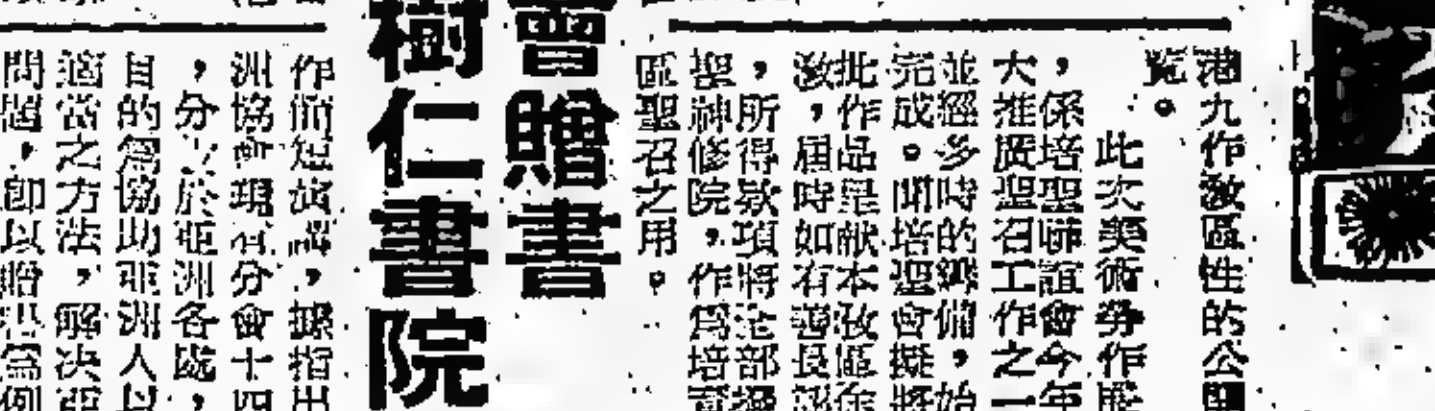 港九作教區性的公開
覽。
此次美術勞作展
，係培聖聯誼會今年
大推廣聖召工作之一
並經多時的籌備，始
完成。聞培聖會擬將
批作品呈献本教區主
教，屆時如有善長認
，所得欵項將全部撥
聖神修院，作爲培育
區聖召之用。
會贈書
樹仁書院
作簡短演講，據指出
洲協會現有分會十四
，分於亞洲各處，
目的爲協助亞洲人以
適當之方法，解决亞
問題，卽以贈書爲例